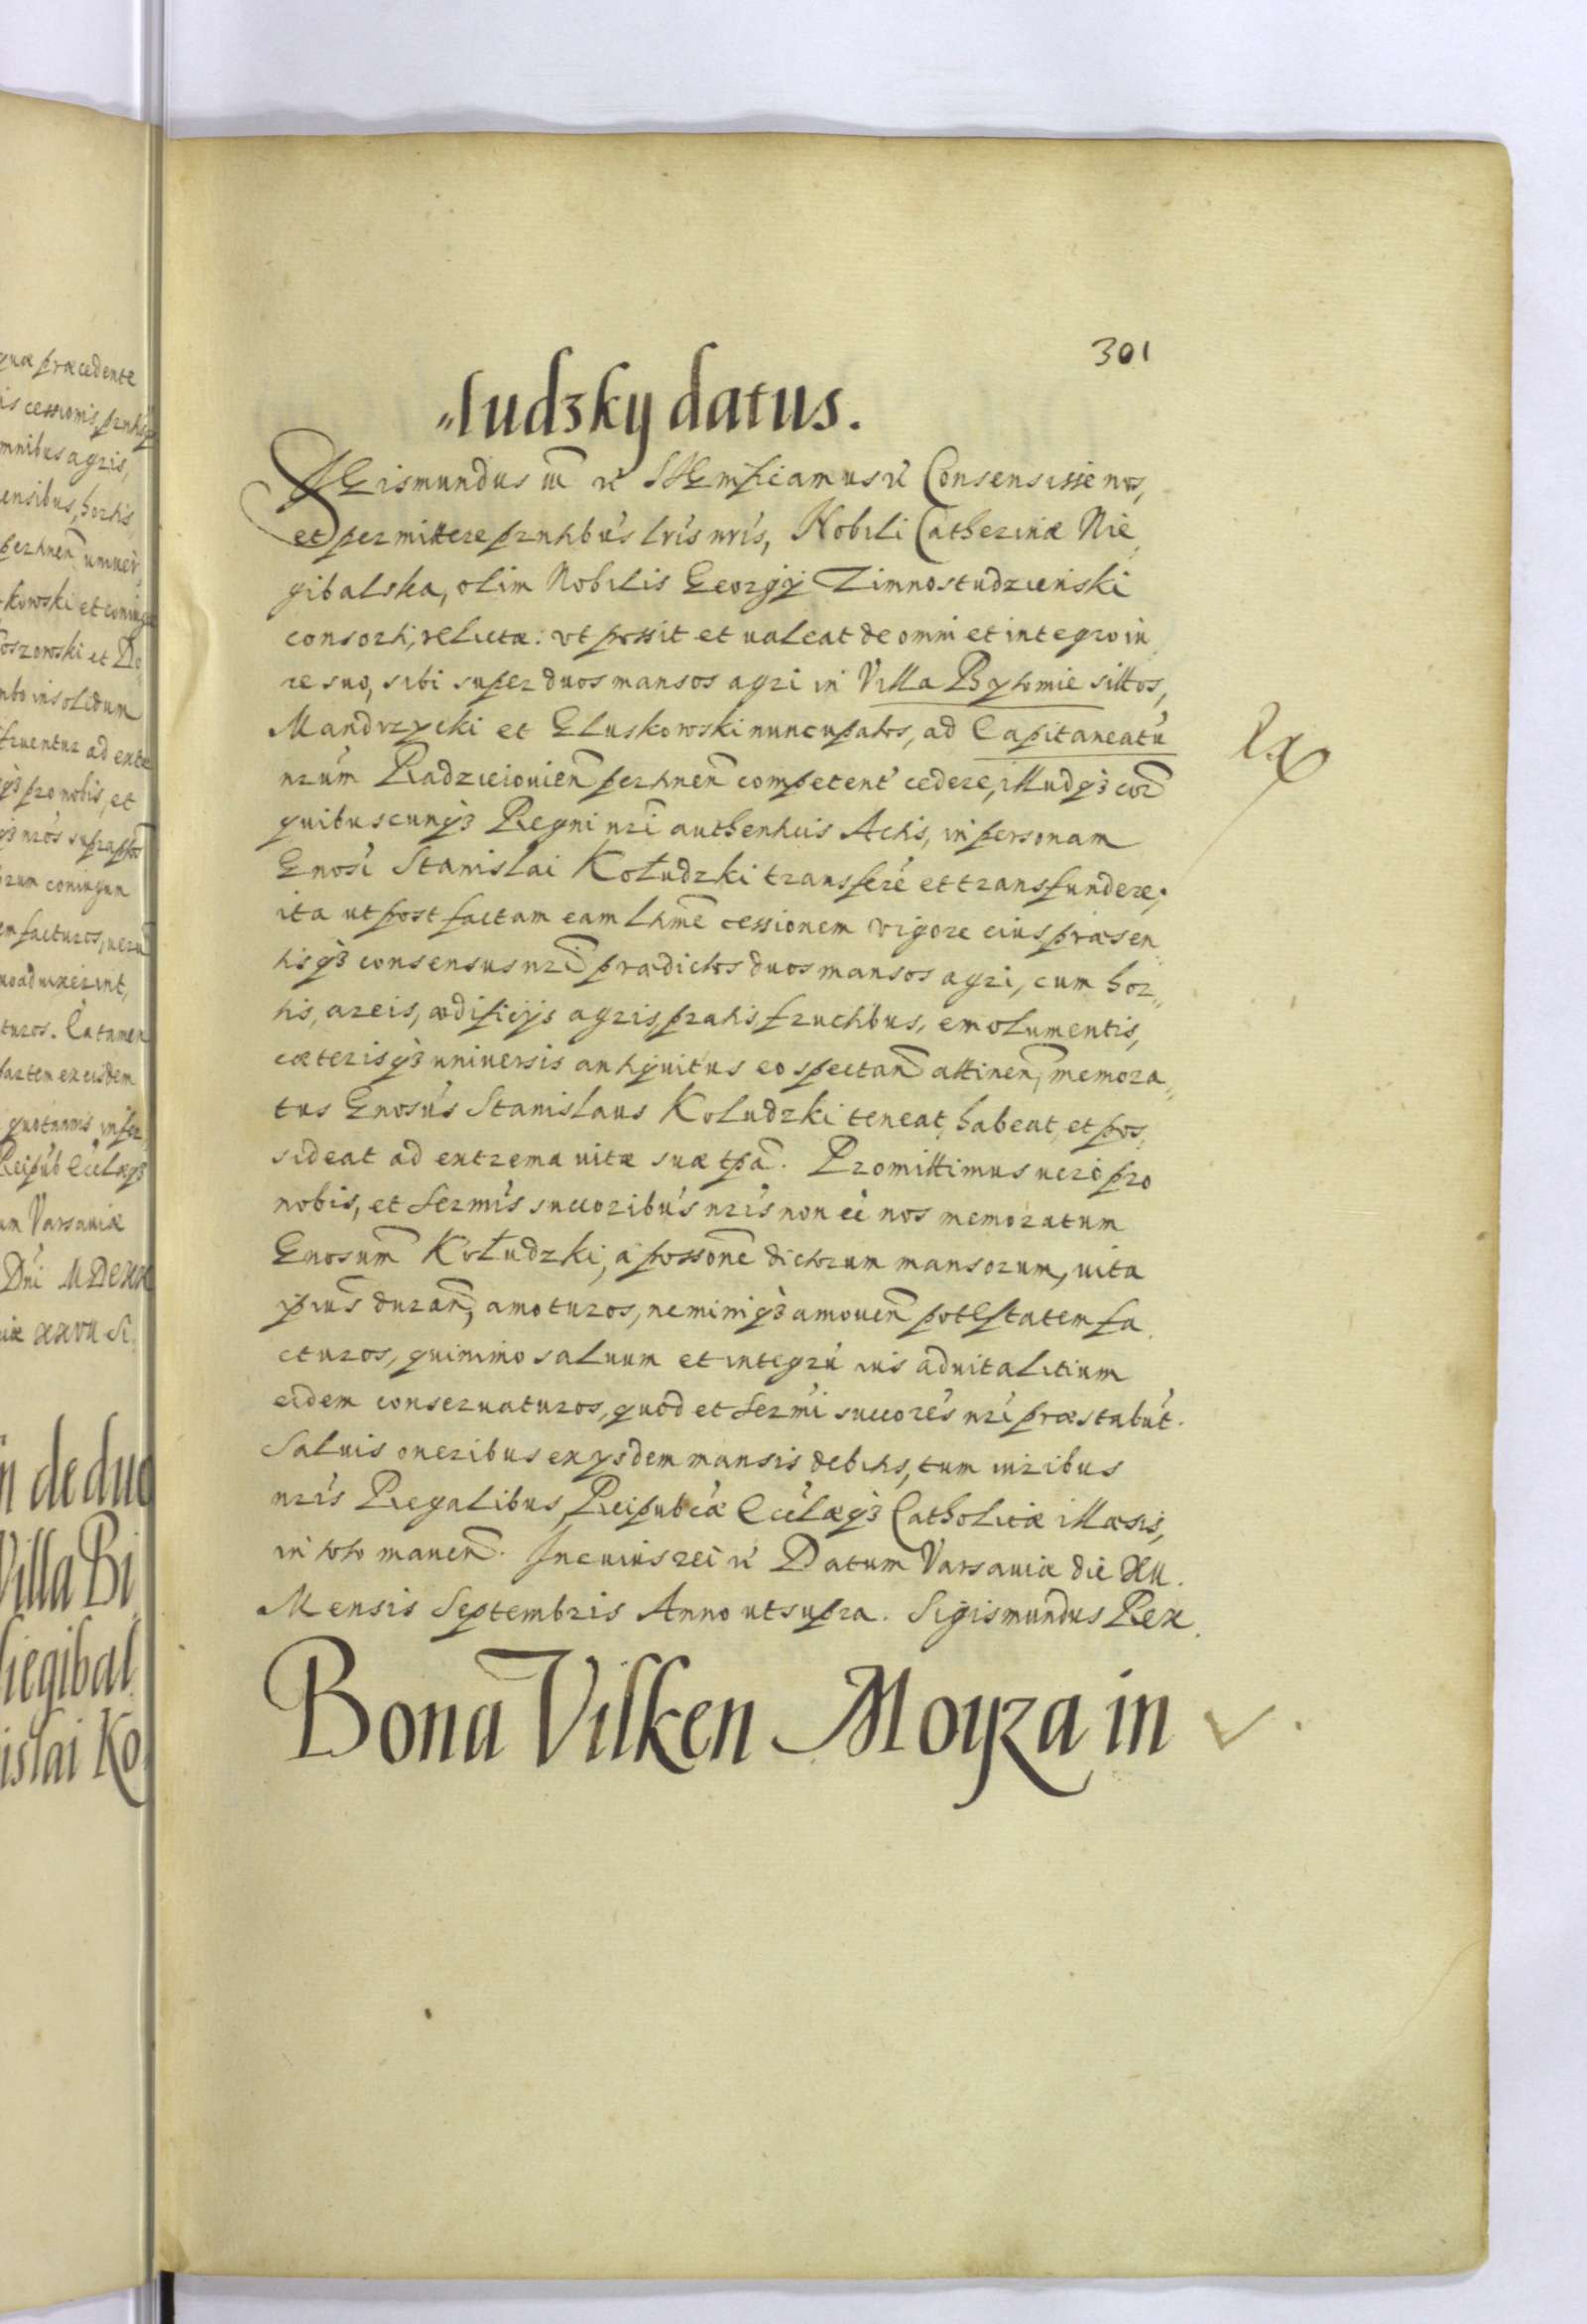 quæ præcedente
is cessionis, pnti
mnibus agris,
ensibus, hortis
pertinen̄ univer̀,
kowski et coniuge
oszowski et Do
mbo insolidum
fruentur ad extre
qз pro nobis, et
qз nros suprapt̄os
rum coniugum
em facturos, verū
uoad vixerint,
turos. Ea tamen
partem ex eisdem
quotannis infer,
Reipub Ecclæqз
um Varsaviæ
Dni MDCXX
iæ XXVII Si
n de duo
Villa Bi,
Niegibal,
islai Ko,
301
„ludzky datus.
SIGismundus iii̅ rc̃ SIGnificamus rc̃ Consensisse nos,
et permittere pnntibus lris nris, Nobili Catherinæ Nie,
gibalska, olim Nobilis Georgij Zimnostudzieński
consorti, relictæ: vt possit et valeat de omni et integro iu,
re suo, sibi super duos mansos agri in Villa Bytomie sittos,
Mandrzycki et Gluskowski nuncupatos, ad Capitaneatū
nrum Radzieiovien̄ pertinen̄ competent' cedere, illudqз cor̄
quibuscunqз Regni nri authenticis Actis, in personam
Gnosi Stanislai Kołudzki transferé et transfundere;
ita ut post factam eam lhme cessionem vigore eius præsen„
tisqз consensus nri prædictos duos mansos agri, cum hor„
tis, areis, ædificijs agris pratis fructibus, emolumentis,
cæterisqз universis antiquitus eo spectan̄ attinen̄, memora„
tus Gnosus Stanislaus Koludzki teneat, habeat, et pos,
sideat ad extrema vitæ suæ tpā. Promittimus vero pro
nobis, et Sermis succoribus nris non eè nos memoratum
Gnosum̄ Kołudzki, à possone dictorum mansorum, vita
ipius duran̄, amoturos, neminiqз amoven̄ potestatem fa,
cturos, quinimo salvum et integrū ius advitalitium
eidem conservaturos, quod et Sermi succores nri præstabūt.
Salvis oneribus ex ysdem mansis debitis, tum iuribus
nris Regalibus, Reipubcæ Ecclæqз Catholicæ illæsis,
in toto manen̄. In cuius rei rc̃ Datum Varsaviæ die XII.
Mensis Septembris Anno ut supra. Sigismundus Rex.
Bona Vilken Moyza in